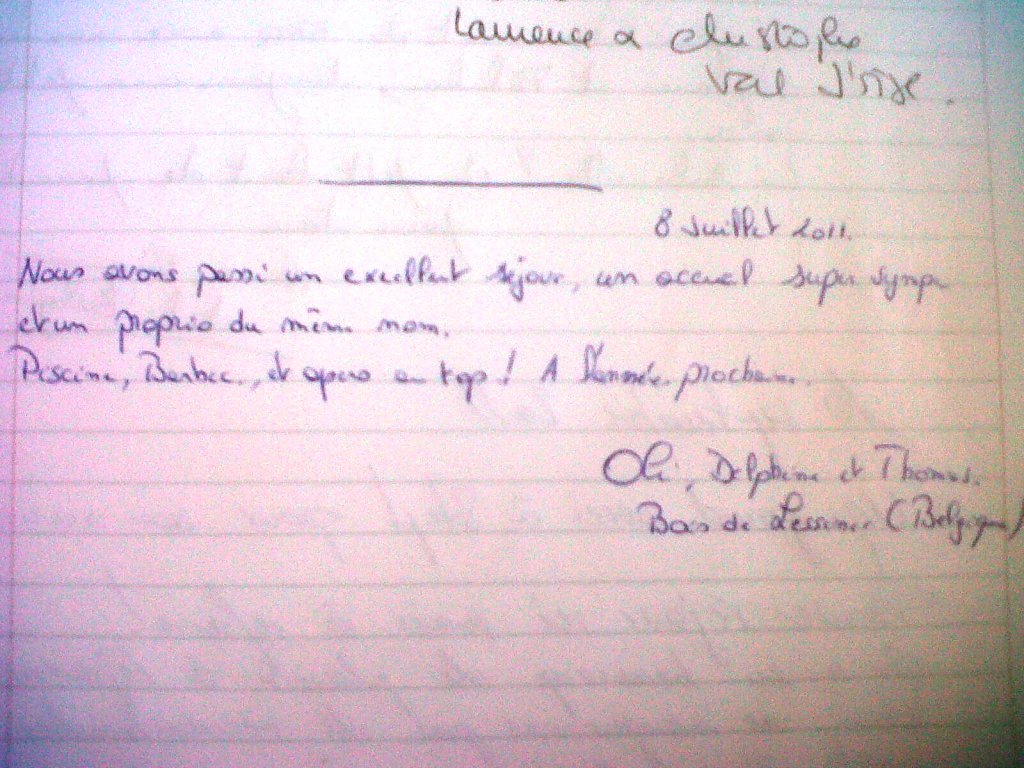 Laurence & Christophe
Val d'Isère.
8 Juillet 2011.
Nous avons passé un excellent séjour, un accueil super sympa
et un proprio du même nom.
Piscine, Barbec., et apéro au top! A l'année prochaine.
Oli, Delphine et Thomas.
Bois de Lessines (Belgique)